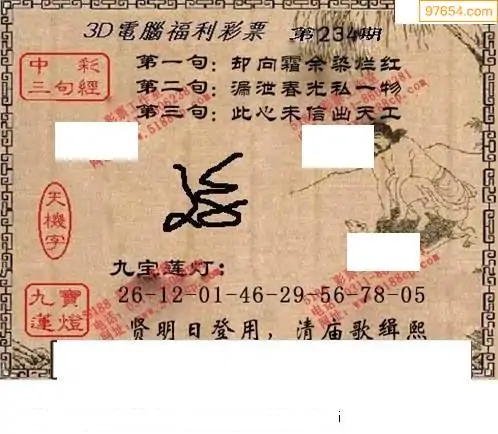 97654.com
3D電腦福利彩票 第234期
中彩三句經
第一句：却向霜余染烂红
第二句：漏泄春光私一物
第三句：此心未信出天工
天機字
九宝莲灯：
九寶蓮燈
26-12-01-46-29-56-78-05
贤明日登用，清庙歌缉熙
i